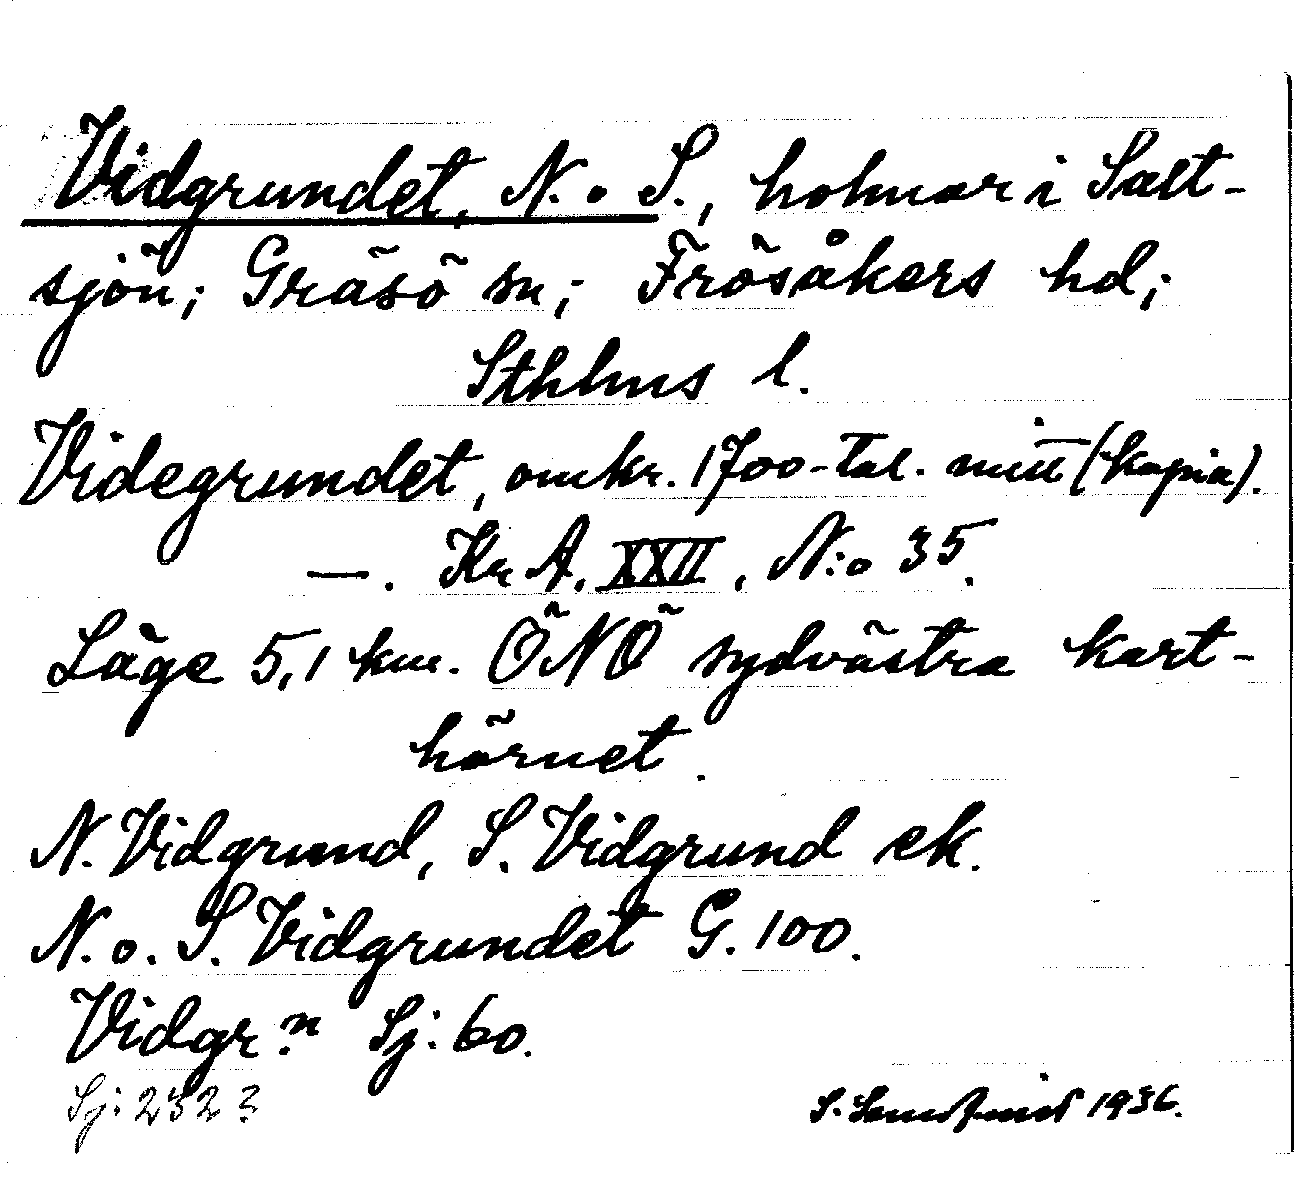 Vidgrundet, N. o S., holmar i Salt-
sjön; Gräsö sn; Frösåkers hd;
Sthlms l.
Videgrundet, omkr. 1700-tal. mitt (kopia).
—. Kr A. XXII, N:o 35.
Läge 5,1 km. ÖNÖ sydvästra kart-
hörnet.
N. Vidgrund, S. Vidgrund ek.
N. o. S. Vidgrundet G. 100.
Vidgr:n Sj: 60.
Sj: 2323
S. 1936.